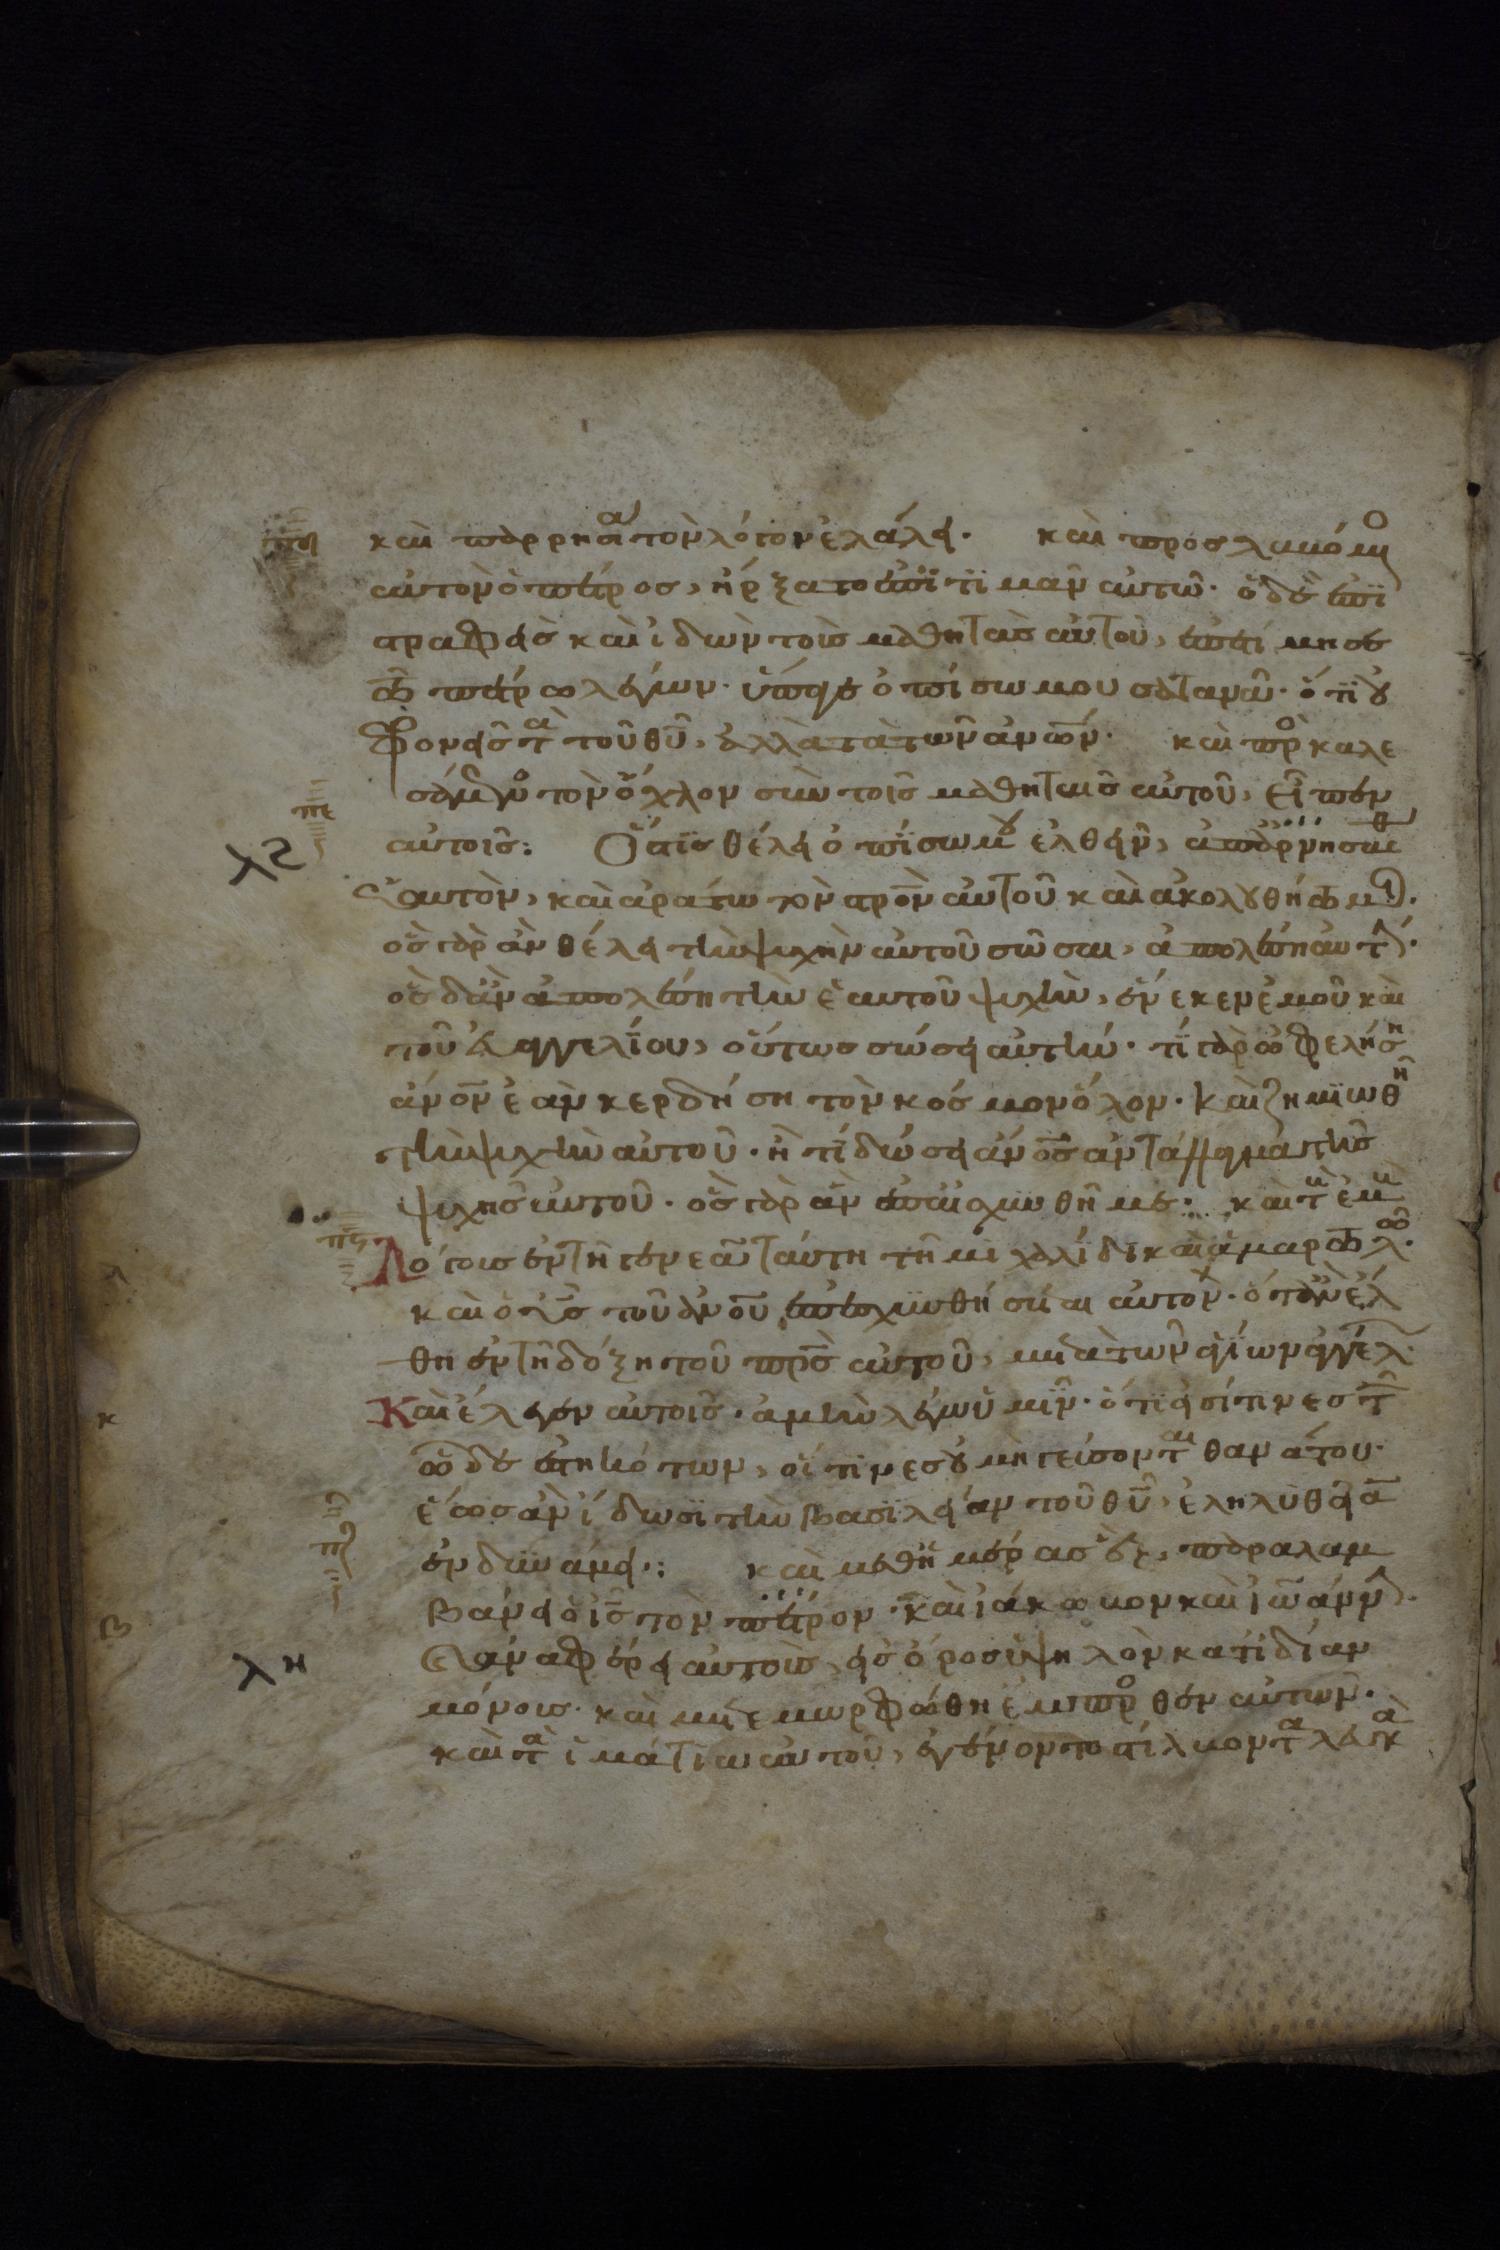 καὶ παρρησία τὸν λόγον ἐλάλει. καὶ προσλαβόμ
αὐτὸν ὁ πέτρος, ἤρξατο ἐπϊτϊμᾶν αὐτῶ. ὁ δὲ ἐπϊ
στραφεὶς καὶ ἰδὼν τοὺς μαθητὰς αὐτοῦ, ἐπετίμησε
τῶ πέτρω λέγων. ὕπαγε ὀπίσω μου σατανᾶ. ὅτϊ οὐ
φρονεῖς τὰ τοῦ θυ, ἀλλὰ τὰ τῶν ἀνων. καὶ προσκαλε
σάμενος τὸν ὄχλον σὺν τοῖς μαθηταῖς αὐτοῦ, εἶπεν
αὐτοῖς: Ὅστϊς θέλει ὀπίσω μου ἐλθεῖν, ἀπαρνησασθ
λς
ἑαυτὸν, καὶ ἀράτω τὸν στρον αὐτοῦ καὶ ἀκολουθήτω μοι.
ὃς γὰρ ἂν θέλει τὴν ψυχὴν αὐτοῦ σῶσαι, ἀπολέσει αὐτήν.
ὃς δ' ἂν ἀπολέση τὴν ἑαυτοῦ ψυχὴν, ἕνεκεν ἐμοῦ καὶ
τοῦ εὐαγγελίου, οὕτως σώσει αὐτήν. τί γὰρ ὠφελήση
ἄνον ἐὰν κερδήση τὸν κόσμον ὅλον. καὶ ζημϊωθῆ
τὴν ψυχὴν αὐτοῦ. ἢ τί δώσει ἄνος ἀντάλλαγμα τῆς
ψυχῆς αὐτοῦ. ὃς γὰρ ἂν ἐπαισχυνθῆ με. καὶ τοὺς ἐμοὺς
λόγους ἐν τῆ γενεᾶ ταύτη τῆ μοιχαλίδι καὶ ἁμαρτωλῶ.
καὶ ὁ υς τοῦ ἀνου ἐπαισχυνθήσεται αὐτὸν. ὅταν ἔλ
θη ἐν τῆ δόξη τοῦ πρς αὐτοῦ, μετὰ τῶν ἁγίων ἀγγέλ.
Καὶ ἔλεγεν αὐτοῖς. ἀμὴν λέγω ὑμῖν. ὅτϊ εἰσί τινες τῶν
ὧδε ἑστηκότων, οἵτινες οὐ μὴ γεύσονται θανάτου.
ἕως ἂν ἴδωσϊ τὴν βασϊλείαν τοῦ θυ, ἐληλυθυῖαν
ἐν δυνάμει: καὶ μεθ' ἡμέρας ἓξ, παραλαμ
βάνει ὁ ις τὸν πέτρον. καὶ ἰάκωβον καὶ ἰωάννην.
λη
καὶ ἀναφέρει αὐτοὺς, εἰς ὄρος ὑψηλὸν κατ' ἰδίαν
μόνους. καὶ μετεμορφώθη ἔμπροσθεν αὐτῶν.
καὶ τὰ ἱμάτια αὐτοῦ, ἐγένοντο στίλβοντα λευκὰ